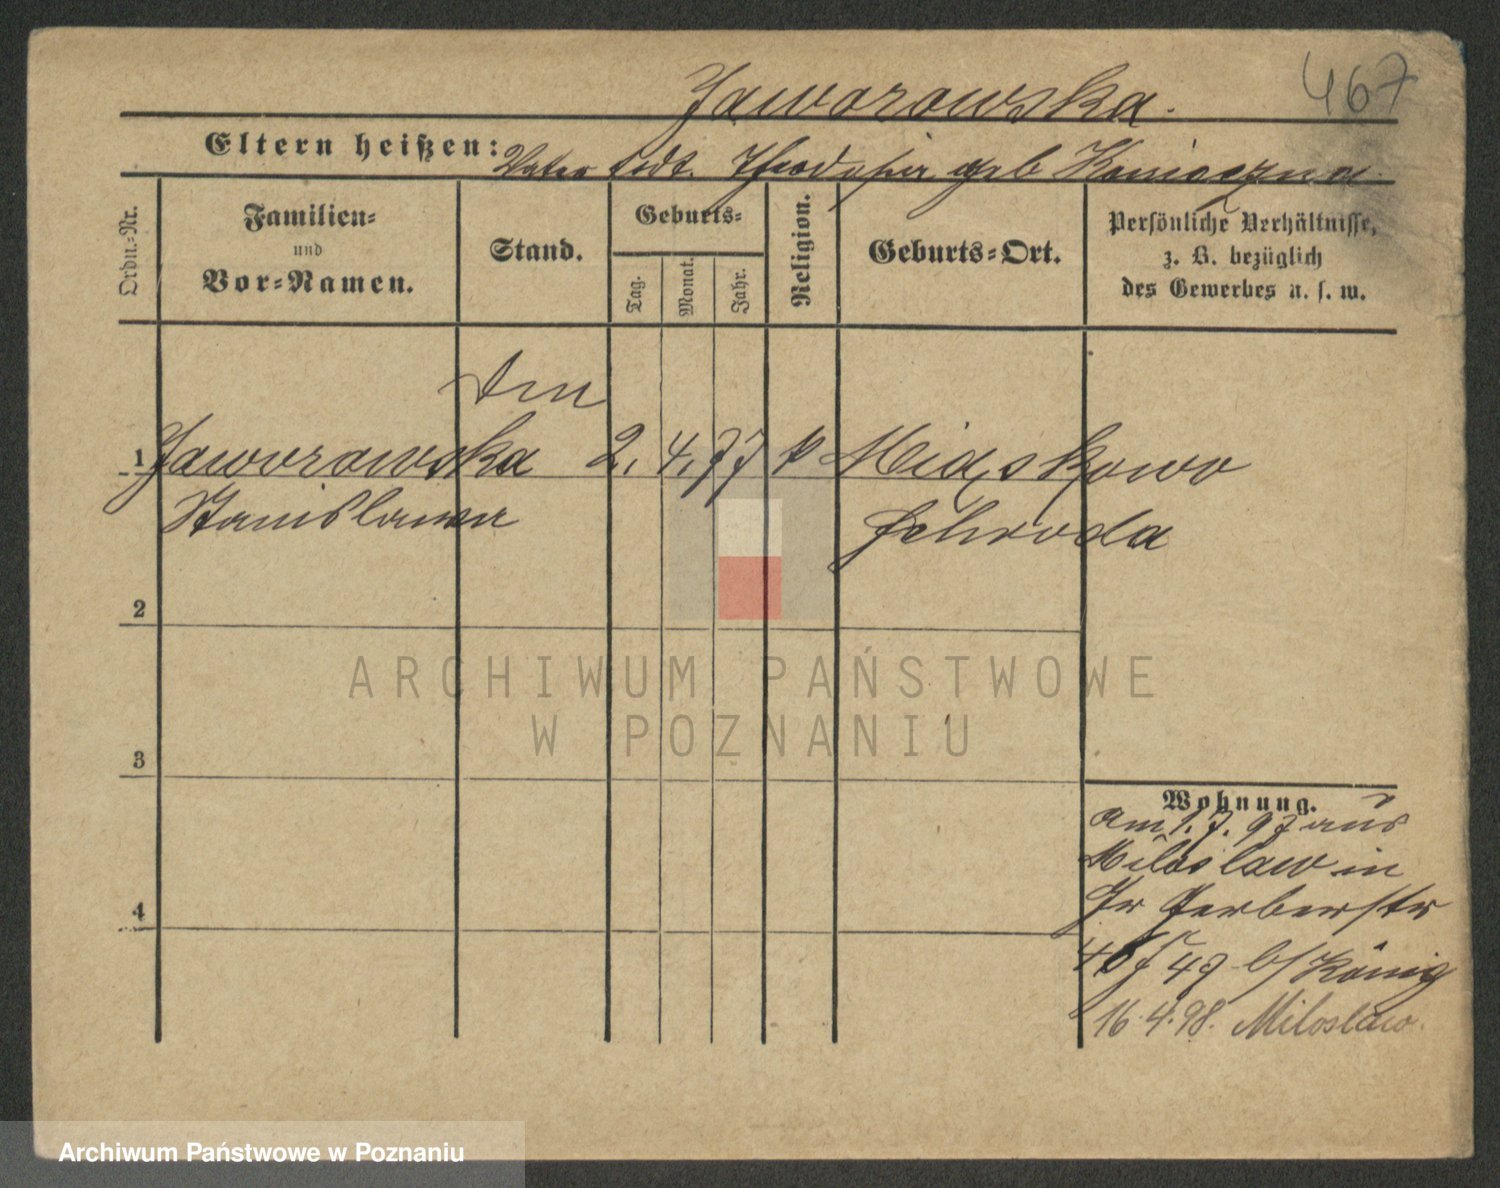 467
Jaworowska.
Eltern heißen: Vater todt. Theodosia geb Konieczna.
Ordn.-Nr.
Familien- und Vor-Namen.
Stand.
Geburts-
Tag.
Monat.
Jahr.
Religion.
Geburts-Ort.
Persönliche Verhältnisse,
z. B. bezüglich
des Gewerbes u. s. w.
1 Jaworowska 2. 4. 77 k Miąskowo
Stanislawa Schroda
2
3
4
Wohnung.
am 1. 7. 97 aus
Miloslaw in
Gr Gerberstr
49 b/ König
16.4.98. Miloslaw.
ARCHIWUM PAŃSTWOWE
W POZNANIU
Archiwum Państwowe w Poznaniu